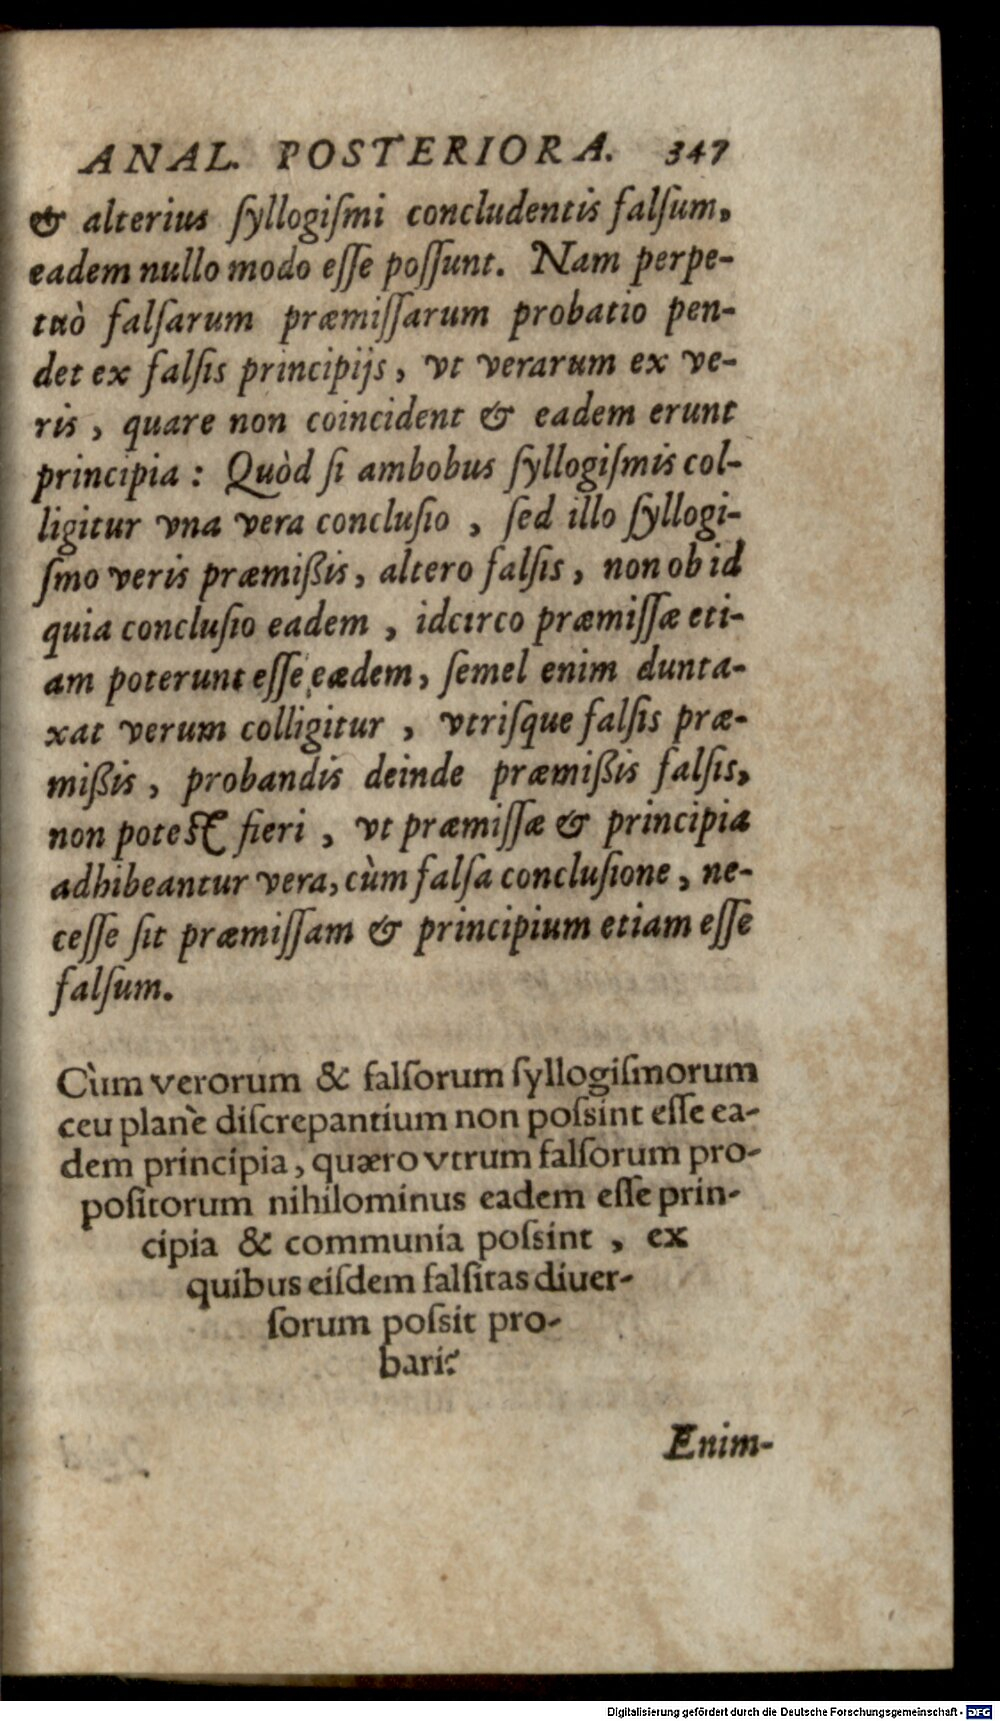 ANAL. POSTERIORA. 347
& alterius ſyllogiſmi concludentis falſum,
eadem nullo modo eſſe poſſunt. Nam perpe-
tuò falſarum præmiſſarum probatio pen-
det ex falſis principijs, vt verarum ex ve-
ris, quare non coincident & eadem erunt
principia: Quòd ſi ambobus ſyllogiſmis col-
ligitur vna vera concluſio, ſed illo ſyllogi-
ſmo veris præmißis, altero falſis, non ob id
quia concluſio eadem, idcirco præmiſſæ eti-
am poterunt eſſe eædem, ſemel enim dunta-
xat verum colligitur, vtriſque falſis præ-
mißis, probandis deinde præmißis falſis,
non poteſt fieri, vt præmiſſæ & principia
adhibeantur vera, cùm falſa concluſione, ne-
ceſſe ſit præmiſſam & principium etiam eſſe
falſum.
Cùm verorum & falſorum ſyllogiſmorum
ceu planè diſcrepantium non poſsint eſſe ea-
dem principia, quæro vtrum falſorum pro-
poſitorum nihilominus eadem eſſe prin-
cipia & communia poſsint, ex
quibus eiſdem falſitas diuer-
ſorum poſsit pro-
bari?
Enim-
Digitalisierung gefördert durch die Deutsche Forschungsgemeinschaft - DFG